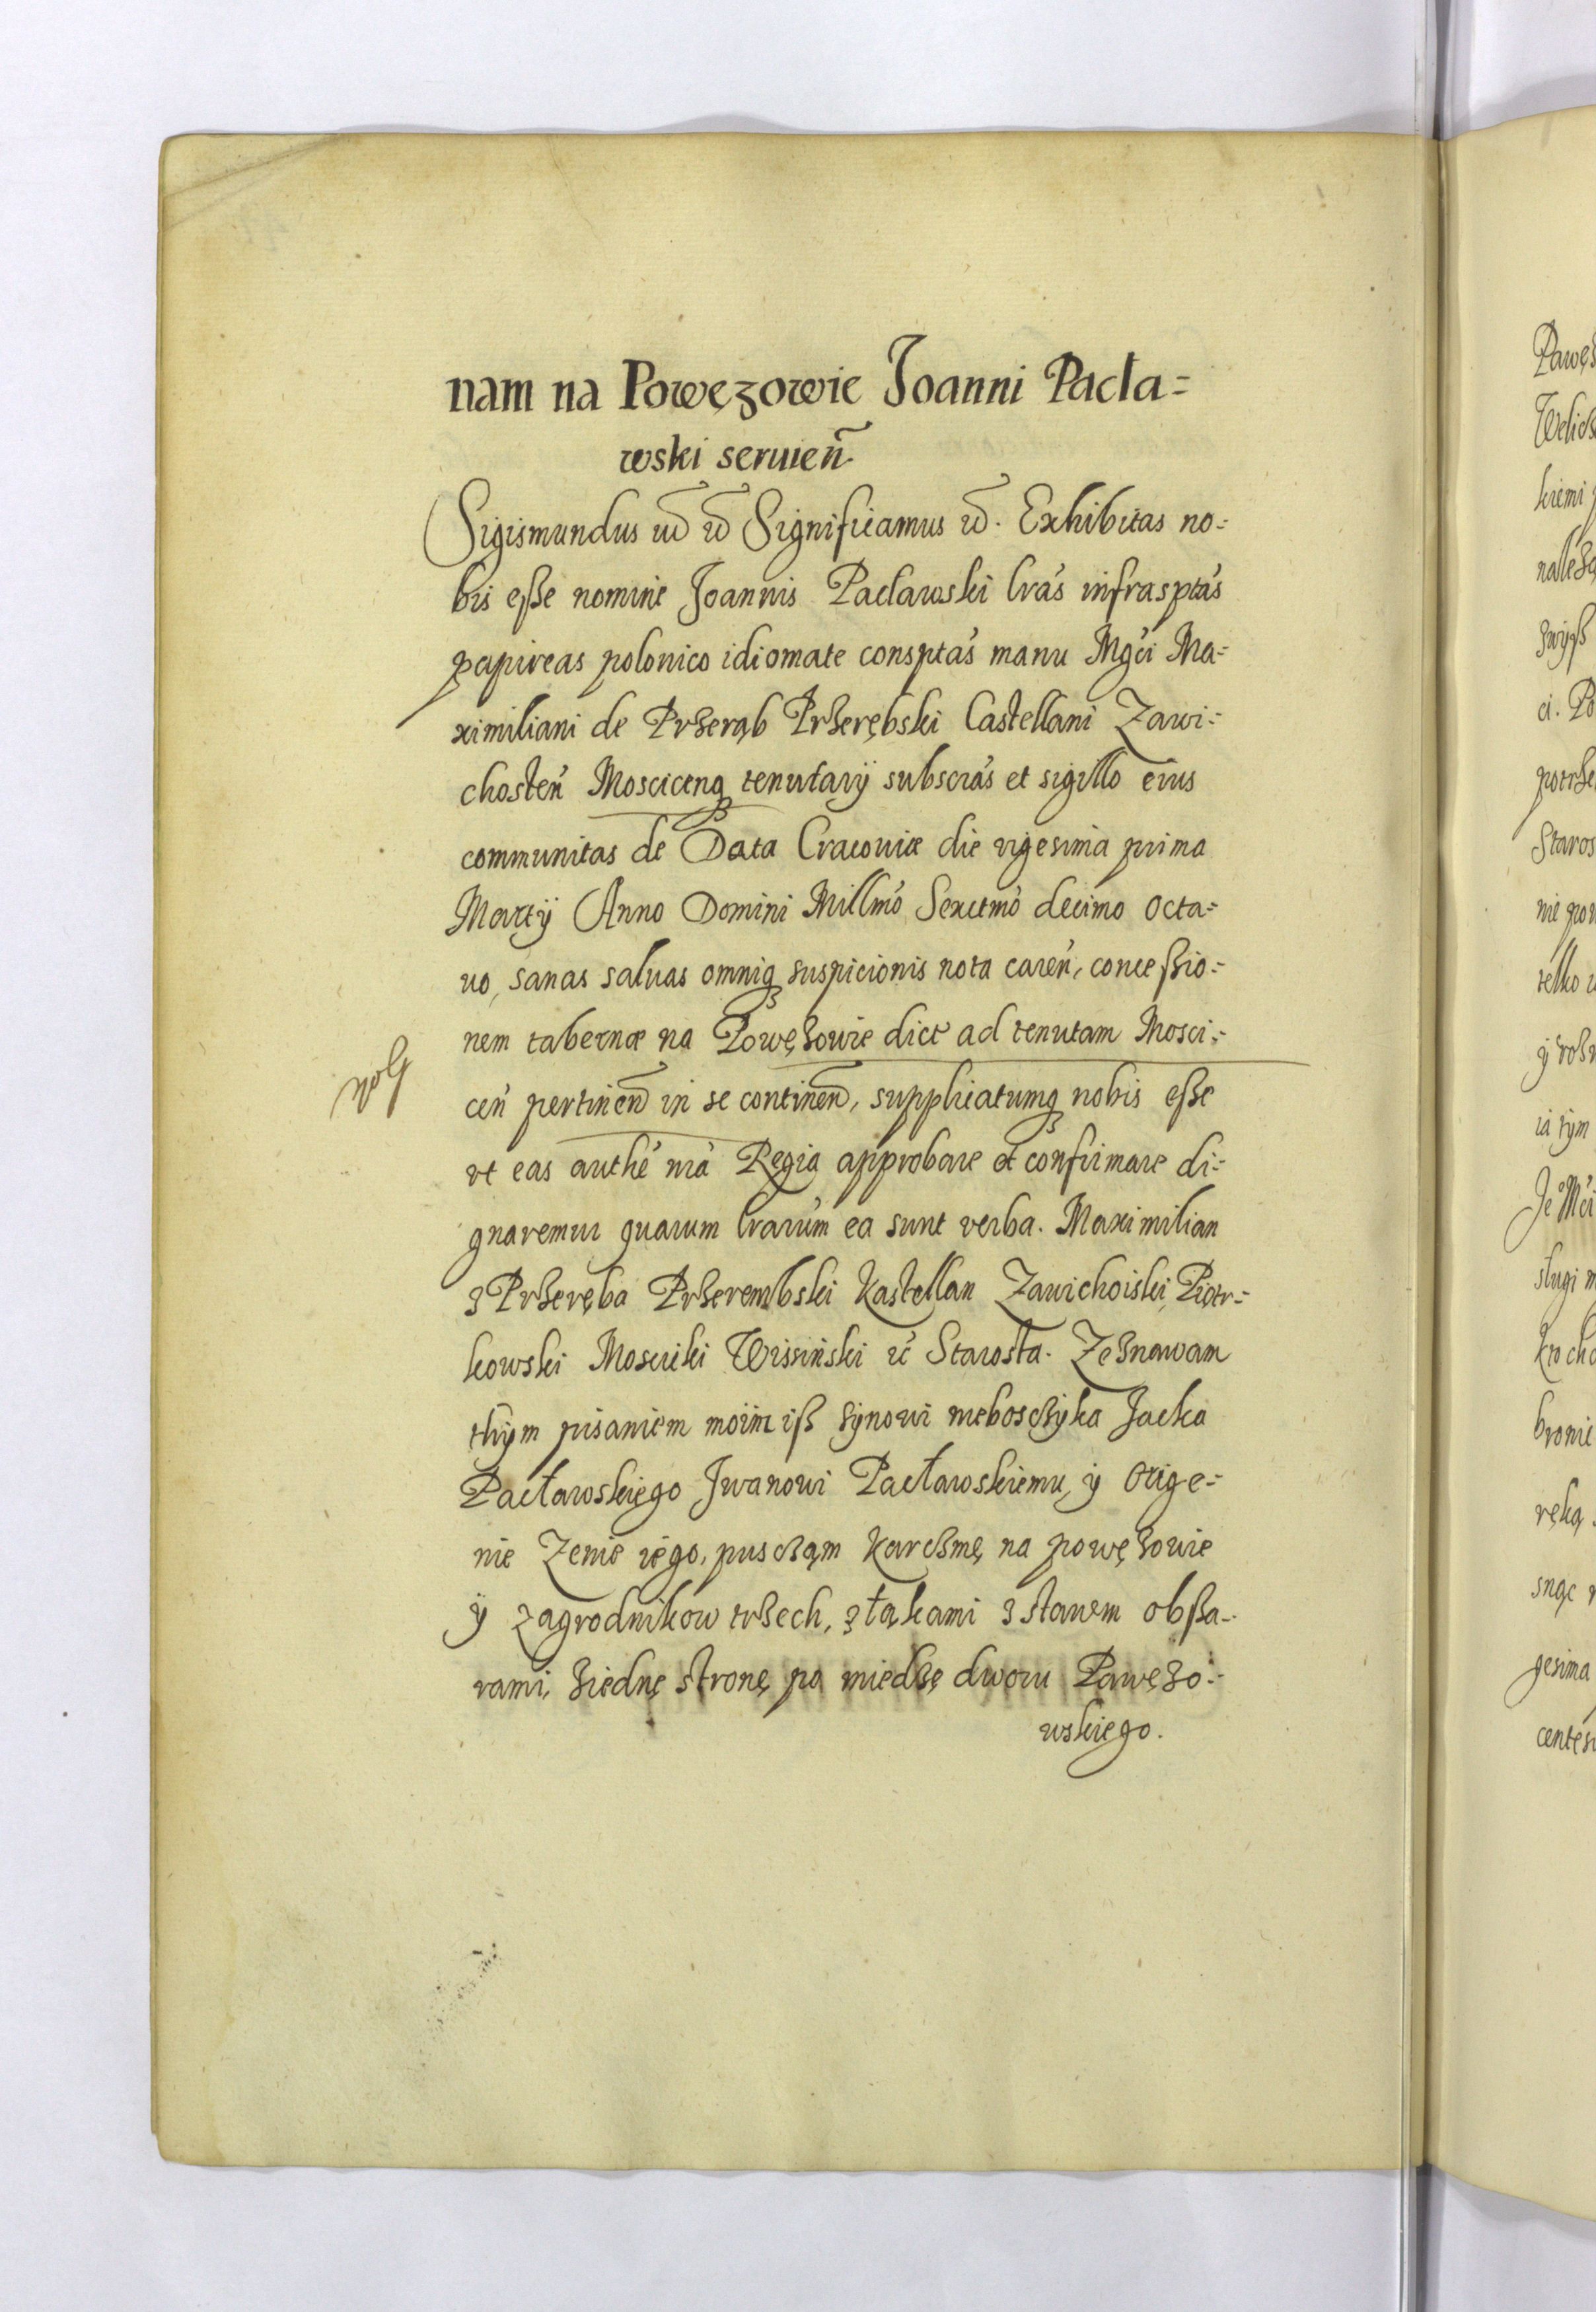 nam na Powęzowie Joanni Pacła=
wski seruień.
Sigismundus etc etc Significamus etc. Exhibitas no=
bis eße nomine Joannis Pacławski lrás infrasptás
papireas polonico idiomate consptás manu Mgci Ma=
ximiliani de Przerąb Przerębski Castellani Zawi=
chosteń Mosciceńq tenutarij subscrás et sigillo eius
communitas de Data Cracouiæ die vigesima prima
Martij Anno Domini Millmo Sexctmo decimo octa=
uo, sanas saluas omniq suspicionis nota careń, conceßio=
nem tabernæ na Powęzowie dict ad tenutam Mosci=
ceń pertineń in se contineń, supplicatumq nobis eße
vt eas authe nra Regia approbare et confirmare di=
gnaremur quarum lrarum ea sunt verba. Maximilian
z Przeręba Przerembski Kastellan Zawichoiski, Piotr=
kowski Moscicki Wisiński etc Starosta. Zeznawam
thym pisaniem moim iß synowi nieboszczyka Jacka
Pacławskiego Jwanowi Pacławskiemu, y Orige=
nie Zenie iego, puscząm Karczmę na powęzowie
ÿ zagrodnikow trzech, złąkami z stawem obßa=
rami, ziednę stronę po miedzę dworu Pawęzo=
wskiego.